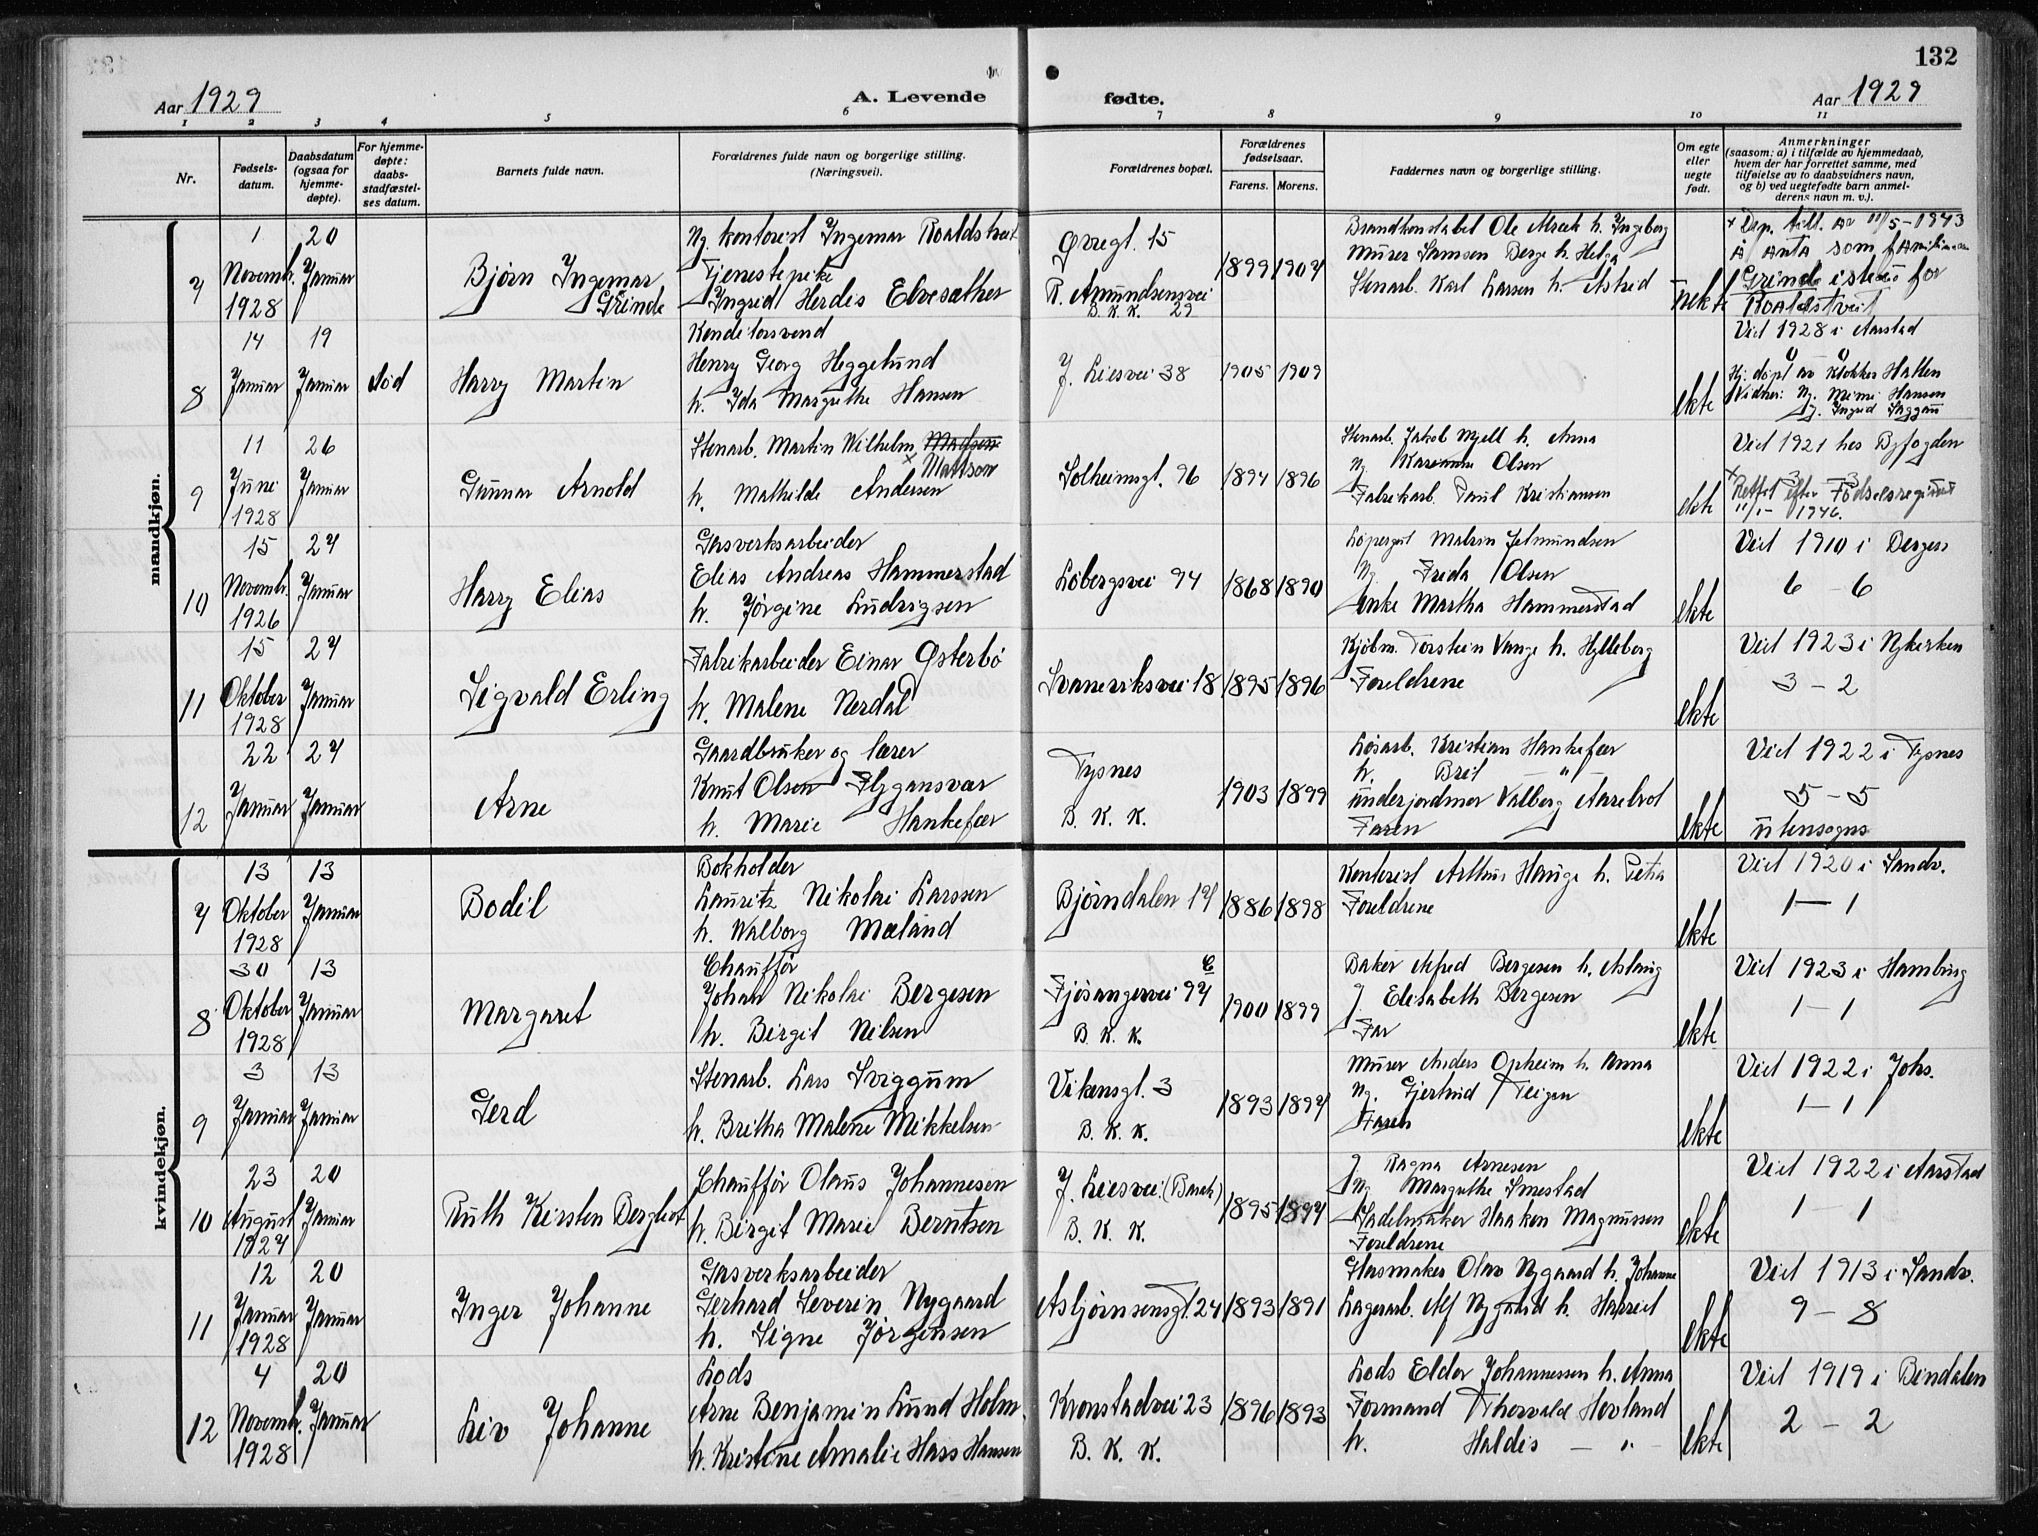 132
Aar 1929
A. Levende
fødte.
Aar 1929
1 2 3 4 5 6 7 8 9 10 11
Nr.
Fødsels-
datum.
Daabsdatum
(ogsaa for
hjemme-
døpte).
For hjemme-
døpte:
daabs-
stadfæstel-
ses datum.
Barnets fulde navn.
Forældrenes fulde navn og borgerlige stilling.
(Næringsvei).
Forældrenes bopæl.
Forældrenes
fødselsaar.
Farens. Morens.
Faddernes navn og borgerlige stilling.
Om egte
eller
uegte
født.
Anmerkninger
(saasom: a) i tilfælde av hjemmedaab,
hvem der har forrettet samme, med
tilføielse av to daabsvidners navn,
og b) ved uegtefødte barn anmel-
derens navn m. v.).
mandkjøn.
7
1
Novembr.
1928
20
Januar
Bjørn Ingemar
Grinde
Ng. kontorist Ingemar Roaldstveit
Tjenestepike
Ingrid Herdis Elvesæther
Øvregt. 15
R. Amundsensvei
B. K. K. 29
1899 1907
Brandkonstabel Ole h. Ingeborg
Murer Samson Berge h. Helga
Stenarb. Karl Larsen h. Astrid
uekte
+ Dep. till. av 11/5-1943
å anta som familienavn
Grinde istedo for
Roaldstveit
8
14
Januar
19
Januar
død
Harry Martin
Konditorsvend
Henry Georg Heggelund
h. Ida Margrethe Hansen
J. Liesvei 38
1905 1909
ekte
Viet 1928 i Aarstad
Hj. døpt av klokker Hatlen
Vidner: Ng. Mimi Hansen
Ingrid
9
11
Juni
1928
26
Januar
Gunnar Arnold
Stenarb. Martin Wilhelm Madsen
x Mattson
h. Mathilde Andersen
Solheimsgt. 96
1894 1896
Stenarb. Jakob Mjell h. Anna
Ng. Olsen
Fabrikarb. Paul Kristiansen
ekte
Viet 1921 hos Byfogden
3 - 3
x Rettet efter Fødselsregisteret
11/1- 1946.
10
15
Novembr.
1926
27
Januar
Harry Elias
Gasverksarbeider
Elias Andreas Hammerstad
h. Jørgine Ludvigsen
Løbergsvei 94
1868 1890
Løpergut Malvin
Ng. Frida Olsen
Enke Martha Hammerstad
ekte
Viet 1910 i Bergen
6 - 6
11
15
Oktober
1928
27
Januar
Sigvald Erling
Fabrikarbeider Einar Østerbø
h. Malene Nerdal
Svaneviksvei 18
1895 1896
Kjøbm. Torstein Vange h. Hylleborg
Foreldrene
ekte
Viet 1923 i Nykirken
3 - 2
12
22
Januar
27
Januar
Arne
Gaardbruker og lærer
Knut Olsen Flygansvær
h. Marie Hankefær
Tysnes
B. K. K.
1903 1899
Løsarb. Kristian Hankefær
h. Brit "
underjordmor Valborg
Faren
ekte
Viet 1922 i Tysnes
5 - 5
utensogns
kvindekjøn.
7
13
Oktober
1928
13
Januar
Bodil
Bokholder
Lauritz Nikolai Larssen
h. Walborg Mæland
Bjørndalen 17
1886 1898
Kontorist Arthur Hauge h. Petra
Foreldrene
ekte
Viet 1920 i Sandv.
1 - 1
8
30
Oktober
1928
13
Januar
Margaret
Chauffør
Johan Nikolai Bergesen
h. Birgit Nilsen
Fjøsangervei 97 C
B. K. K.
1900 1899
Baker Alfred Bergesen h. Aslaug
J. Elisabeth Bergesen
Far
ekte
Viet 1923 i Hamburg
1 - 1
9
3
Januar
13
Januar
Gerd
Stenarb. Lars Sviggum
h. Britha Malene Mikkelsen
Vikensgt. 3
B. K. K.
1893 1897
Murer Anders Opheim h. Anna
Ng. Gjertrud Teigen
Faren
ekte
Viet 1922 i Johs.
1 - 1
10
23
August
1927
20
Januar
Ruth Kirsten Bergliot
Chauffør Olaus Johannesen
h. Birgit Marie Berntsen
J. Liesvei (Barak)
B. K. K.
1895 1897
J. Ragna Arnesen
Ng. Margrethe Smestad
Sadelmaker Haakon Magnussen
Foreldrene
ekte
Viet 1922 i Aarstad
1 - 1
11
12
Januar
1928
20
Januar
Inger Johanne
Gasverksarbeider
Gerhard Severin Nygaard
h. Signe Jørgensen
Asbjørnsensgt. 24
1893 1891
Glasmaker Olav Nygaard h. Johanne
Lagerarb. Alf Nygaard h. Harriet
ekte
Viet 1913 i Sandv.
9 - 8
12
4
Novembr.
1928
20
Januar
Liv Johanne
Lods
Arne Benjamin Lund Holm.
h. Kristine Amalie Hass Hansen
Kronstadvei 23
B. K. K.
1896 1893
Lods Eldor Johannessen h. Anna
Formand Thorvald Hovland
h. Haldis - " -
ekte
Viet 1919 i Bindalen
2 - 2